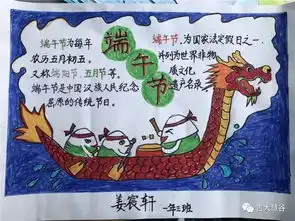 端午节为每年
农历五月初五。
又称端阳节、五月节等。
端午节是中国汉族人民纪念
屈原的传统节日。
端午节
端午节,为国家法定假日之一,
并列为世界非物
质文化
遗产名录。
姜宸轩
一年三班